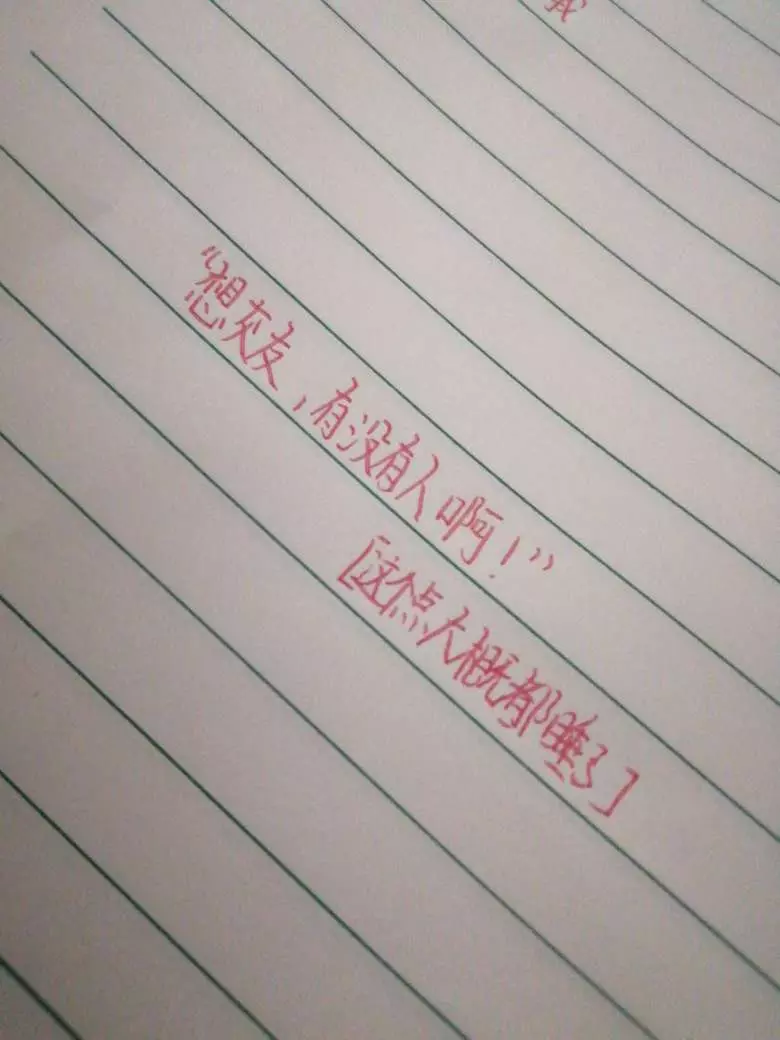 我
“想交友，有没有人啊！”
[这个点大概都睡了]